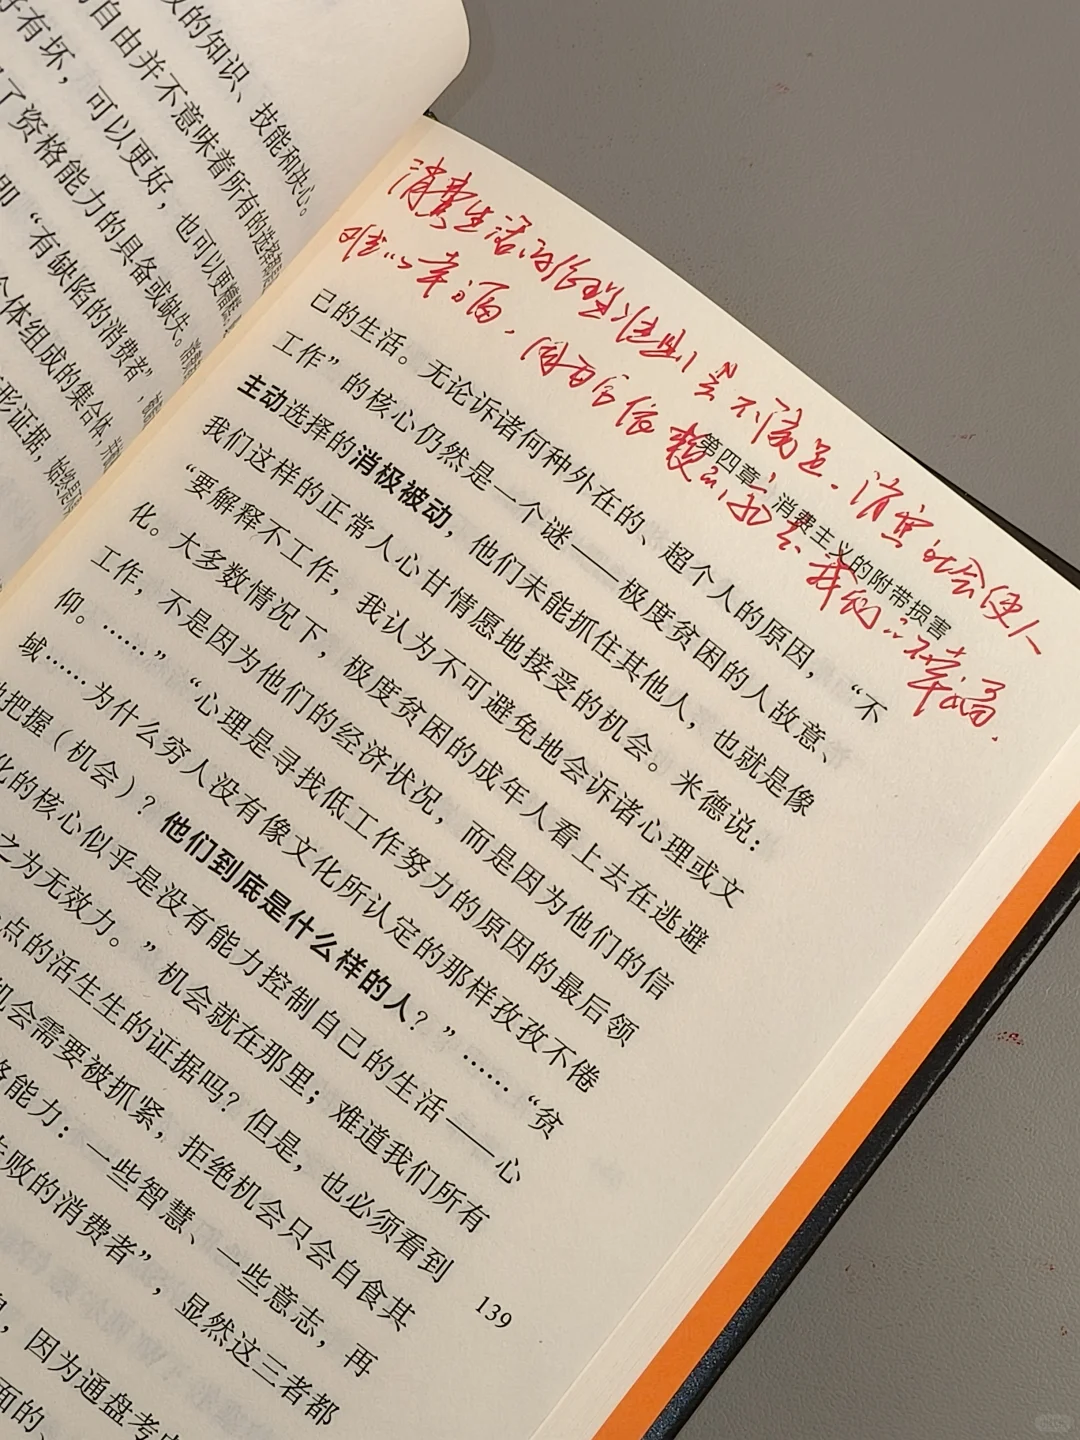 败的知识、技能和决心。
的自由并不意味着所有的选择都是
好有坏，可以更好，也可以更糟
了资格能力的具备或缺失。
即“有缺陷的消费者”，
个体组成的集合体，
形证据，始终是
消费生活的伦理准则是不满足。消费社会使人
难以幸福，因为它依赖的就是我们的不幸福.
第四章 消费主义的附带损害
己的生活。无论诉诸何种外在的、超个人的原因，“不
工作”的核心仍然是一个谜——极度贫困的人故意、
主动选择的消极被动，他们未能抓住其他人，也就是像
我们这样的正常人心甘情愿地接受的机会。米德说：
“要解释不工作，我认为不可避免地会诉诸心理或文
化。大多数情况下，极度贫困的成年人看上去在逃避
工作，不是因为他们的经济状况，而是因为他们的信
仰。……”“心理是寻找低工作努力的原因的最后领
域……为什么穷人没有像文化所认定的那样孜孜不倦
地把握（机会）？他们到底是什么样的人？”……“贫
化的核心似乎是没有能力控制自己的生活——心
之为无效力。”机会就在那里；难道我们所有
点的活生生的证据吗？但是，也必须看到
机会需要被抓紧，拒绝机会只会自食其
格能力：一些智慧、一些意志，再
失败的消费者”，显然这三者都
，因为通盘考
面的、
139